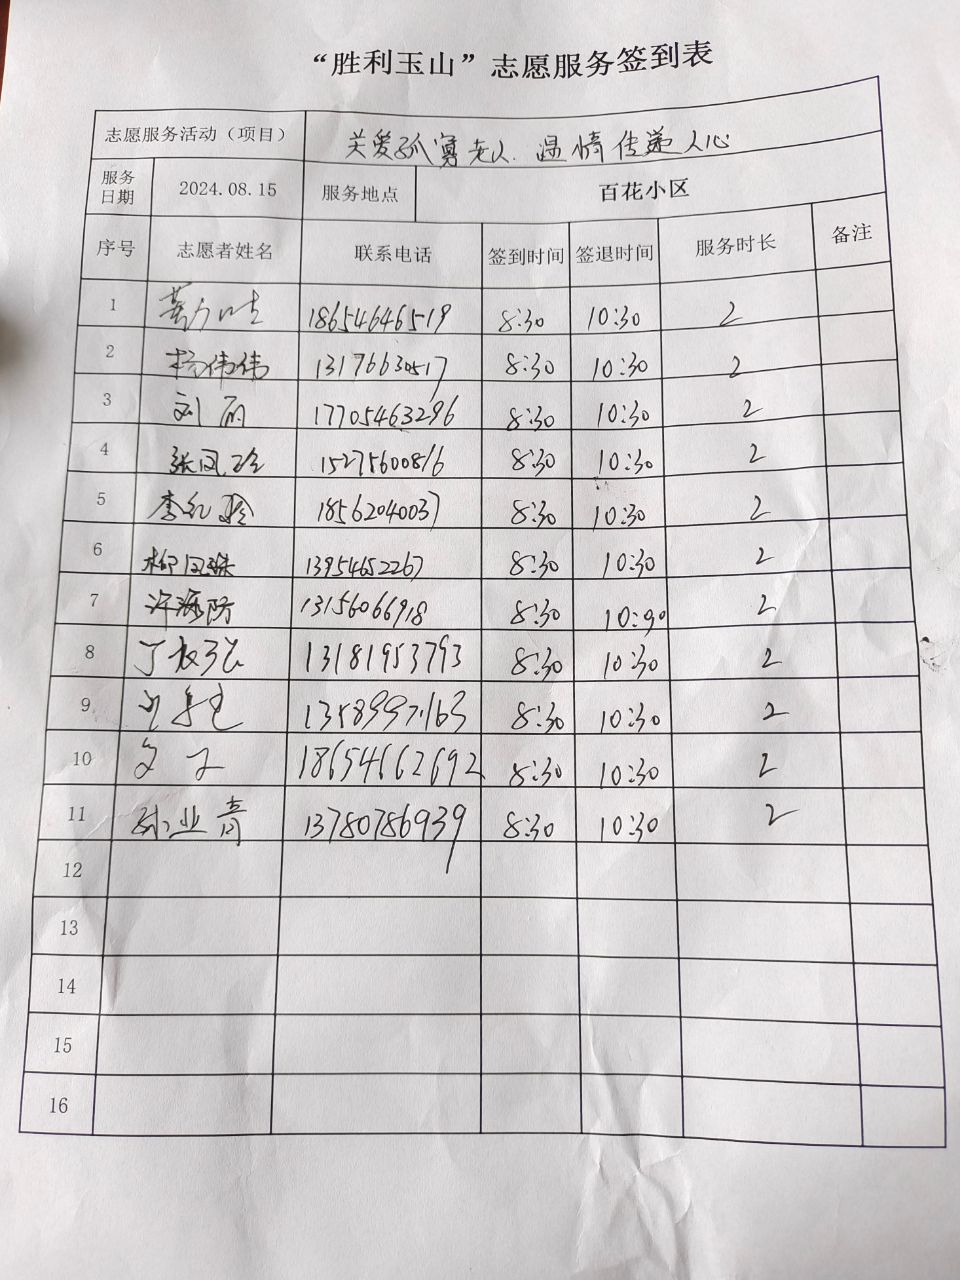 “胜利玉山”志愿服务签到表
志愿服务活动（项目） 关爱孤寡老人.温情传递人心
服务日期 2024.08.15 服务地点 百花小区
序号 志愿者姓名 联系电话 签到时间 签退时间 服务时长 备注
1 18654646519 8:30 10:30 2
2 杨伟伟 13176630517 8:30 10:30 2
3 刘丽 17705463296 8:30 10:30 2
4 张凤玲 15275600816 8:30 10:30 2
5 李红玲 18562040037 8:30 10:30 2
6 柳凤珠 13954652267 8:30 10:30 2
7 许海防 13156066918 8:30 10:30 2
8 13181953793 8:30 10:30 2
9 13589971163 8:30 10:30 2
10 18654662692 8:30 10:30 2
11 孙业青 13780786939 8:30 10:30 2
12
13
14
15
16